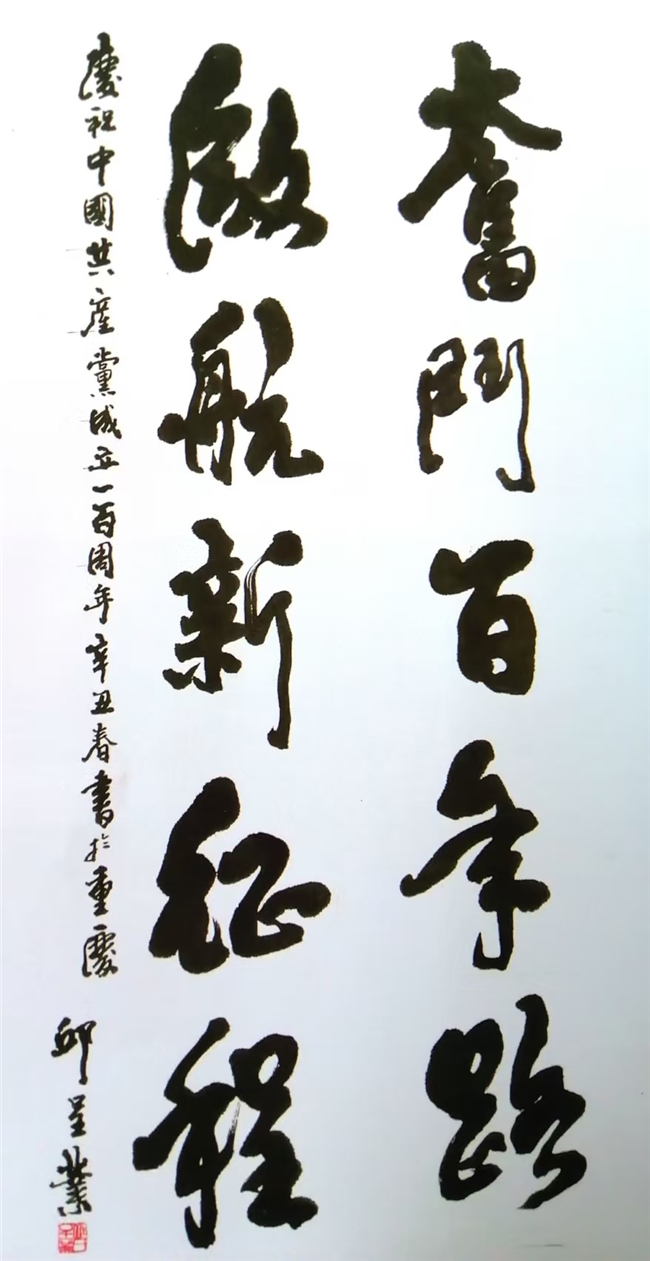 奮鬥百年路
啟航新征程
慶祝中國共產黨成立一百周年辛丑春書於重慶
邱呈業